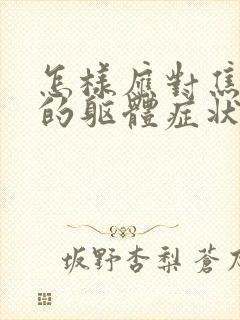 怎樣應對焦
的軀體症狀
坂野杏梨 蒼